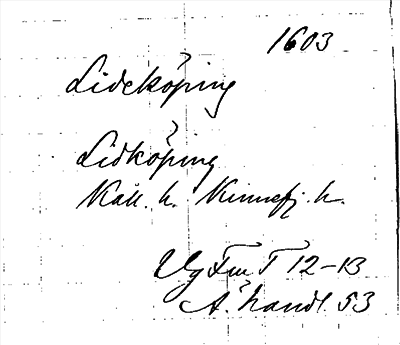 1603
Lideköping
Lidköping
Kåll. h. Kinnefj. h.
Vg Fm T 12-13
Ä. handl. 53